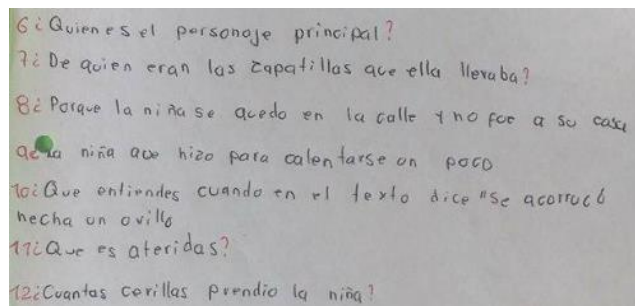 6¿Quien es el personaje principal?
7¿De quien eran las zapatillas que ella llevaba?
8¿Porque la niña se quedo en la calle y no fue a su casa
9¿La niña que hizo para calentarse un poco
10¿Que entiendes cuando en el texto dice "se acorrucó
hecha un ovillo
11¿Que es ateridas?
12¿Cuantas cerillas prendio la niña?